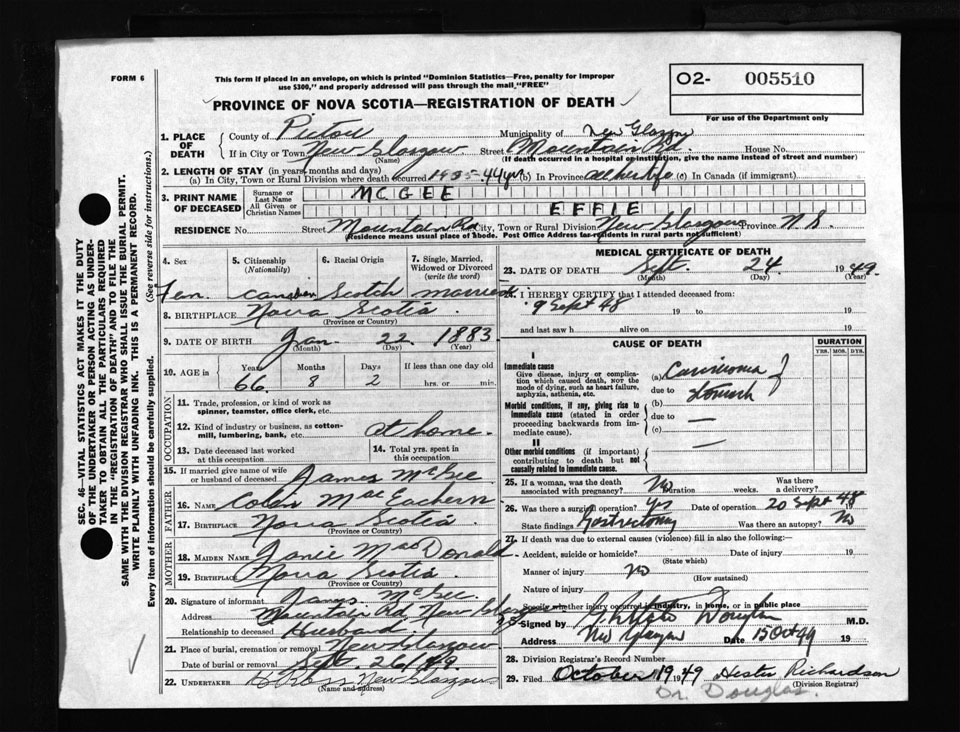 FORM 6
This form if placed in an envelope, on which is printed "Dominion Statistics—Free, penalty for improper
use $300," and properly addressed will pass through the mail, "FREE"
O2- 005510
For use of the Department only
PROVINCE OF NOVA SCOTIA—REGISTRATION OF DEATH
1. PLACE OF DEATH
County of Pictou Municipality of New Glasgow
If in City or Town New Glasgow Street Mountain Rd. House No.
(Name) (If death occurred in a hospital or institution, give the name instead of street and number)
2. LENGTH OF STAY (in years, months and days)
(a) In City, Town or Rural Division where death occurred 44 yrs (b) In Province all her life (c) In Canada (if immigrant)
3. PRINT NAME OF DECEASED
Surname or Last Name MCGEE
All Given or Christian Names EFFIE
RESIDENCE No. Street Mountain Rd City, Town or Rural Division New Glasgow Province N.S
(Residence means usual place of abode. Post Office Address for residents in rural parts not sufficient)
4. Sex 5. Citizenship (Nationality) 6. Racial Origin 7. Single, Married, Widowed or Divorced (write the word)
Fem. Canadian Scotch married
8. BIRTHPLACE Nova Scotia
(Province or Country)
9. DATE OF BIRTH Jan. 22 1883
(Month) (Day) (Year)
10. AGE in Years Months Days If less than one day old
66 8 2 hrs. or min.
OCCUPATION
11. Trade, profession, or kind of work as
spinner, teamster, office clerk, etc.
12. Kind of industry or business, as cotton-
mill, lumbering, bank, etc. at home.
13. Date deceased last worked at this occupation 14. Total yrs. spent in this occupation
15. If married give name of wife or husband of deceased James McGee
FATHER
16. NAME Colin MacEachern
17. BIRTHPLACE Nova Scotia
(Province or Country)
MOTHER
18. MAIDEN NAME Janie MacDonald
19. BIRTHPLACE Nova Scotia
(Province or Country)
20. Signature of informant James McGee
Address Mountain Rd, New Glasgow
Relationship to deceased Husband
21. Place of burial, cremation or removal New Glasgow
Date of burial or removal Sept. 26/49
22. UNDERTAKER New Glasgow
(Name and address)
MEDICAL CERTIFICATE OF DEATH
23. DATE OF DEATH Sept. 24 1949
(Month) (Day) (Year)
24. I HEREBY CERTIFY that I attended deceased from:
9 Sept 48 19 to 19
and last saw h alive on 19
CAUSE OF DEATH DURATION
YRS. MOS. DYS.
I
Immediate cause
Give disease, injury or complication
which caused death, NOT the
mode of dying, such as heart failure,
asphyxia, asthenia, etc.
(a) Carcinoma of
due to stomach
Morbid conditions, if any, giving rise to
immediate cause (stated in order
proceeding backwards from immediate
cause).
(b)
due to —
(c) —
II
Other morbid conditions (if important)
contributing to death but not
causally related to immediate cause.
25. If a woman, was the death associated with pregnancy? No Duration weeks. Was there a delivery?
26. Was there a surgical operation? Yes Date of operation 20 Sept 48 19
State findings Gastrectomy Was there an autopsy? No
27. If death was due to external causes (violence) fill in also the following:—
Accident, suicide or homicide? Date of injury 19
(State which)
Manner of injury No
(How sustained)
Nature of injury
Specify whether injury occurred in industry, in home, or in public place
28 Signed by Douglas M.D.
Address New Glasgow Date 15 Oct 49 19
28. Division Registrar's Record Number
29. Filed October 19 1949 Hester Richardson
(Division Registrar)
Dr. Douglas.
SEC. 46—VITAL STATISTICS ACT MAKES IT THE DUTY
OF THE UNDERTAKER OR PERSON ACTING AS UNDER-
TAKER TO OBTAIN ALL THE PARTICULARS REQUIRED
IN THE "REGISTRATION OF DEATH" AND TO FILE THE
SAME WITH THE DIVISION REGISTRAR WHO SHALL ISSUE THE BURIAL PERMIT.
WRITE PLAINLY WITH UNFADING INK. THIS IS A PERMANENT RECORD.
Every item of information should be carefully supplied. (See reverse side for instructions.)